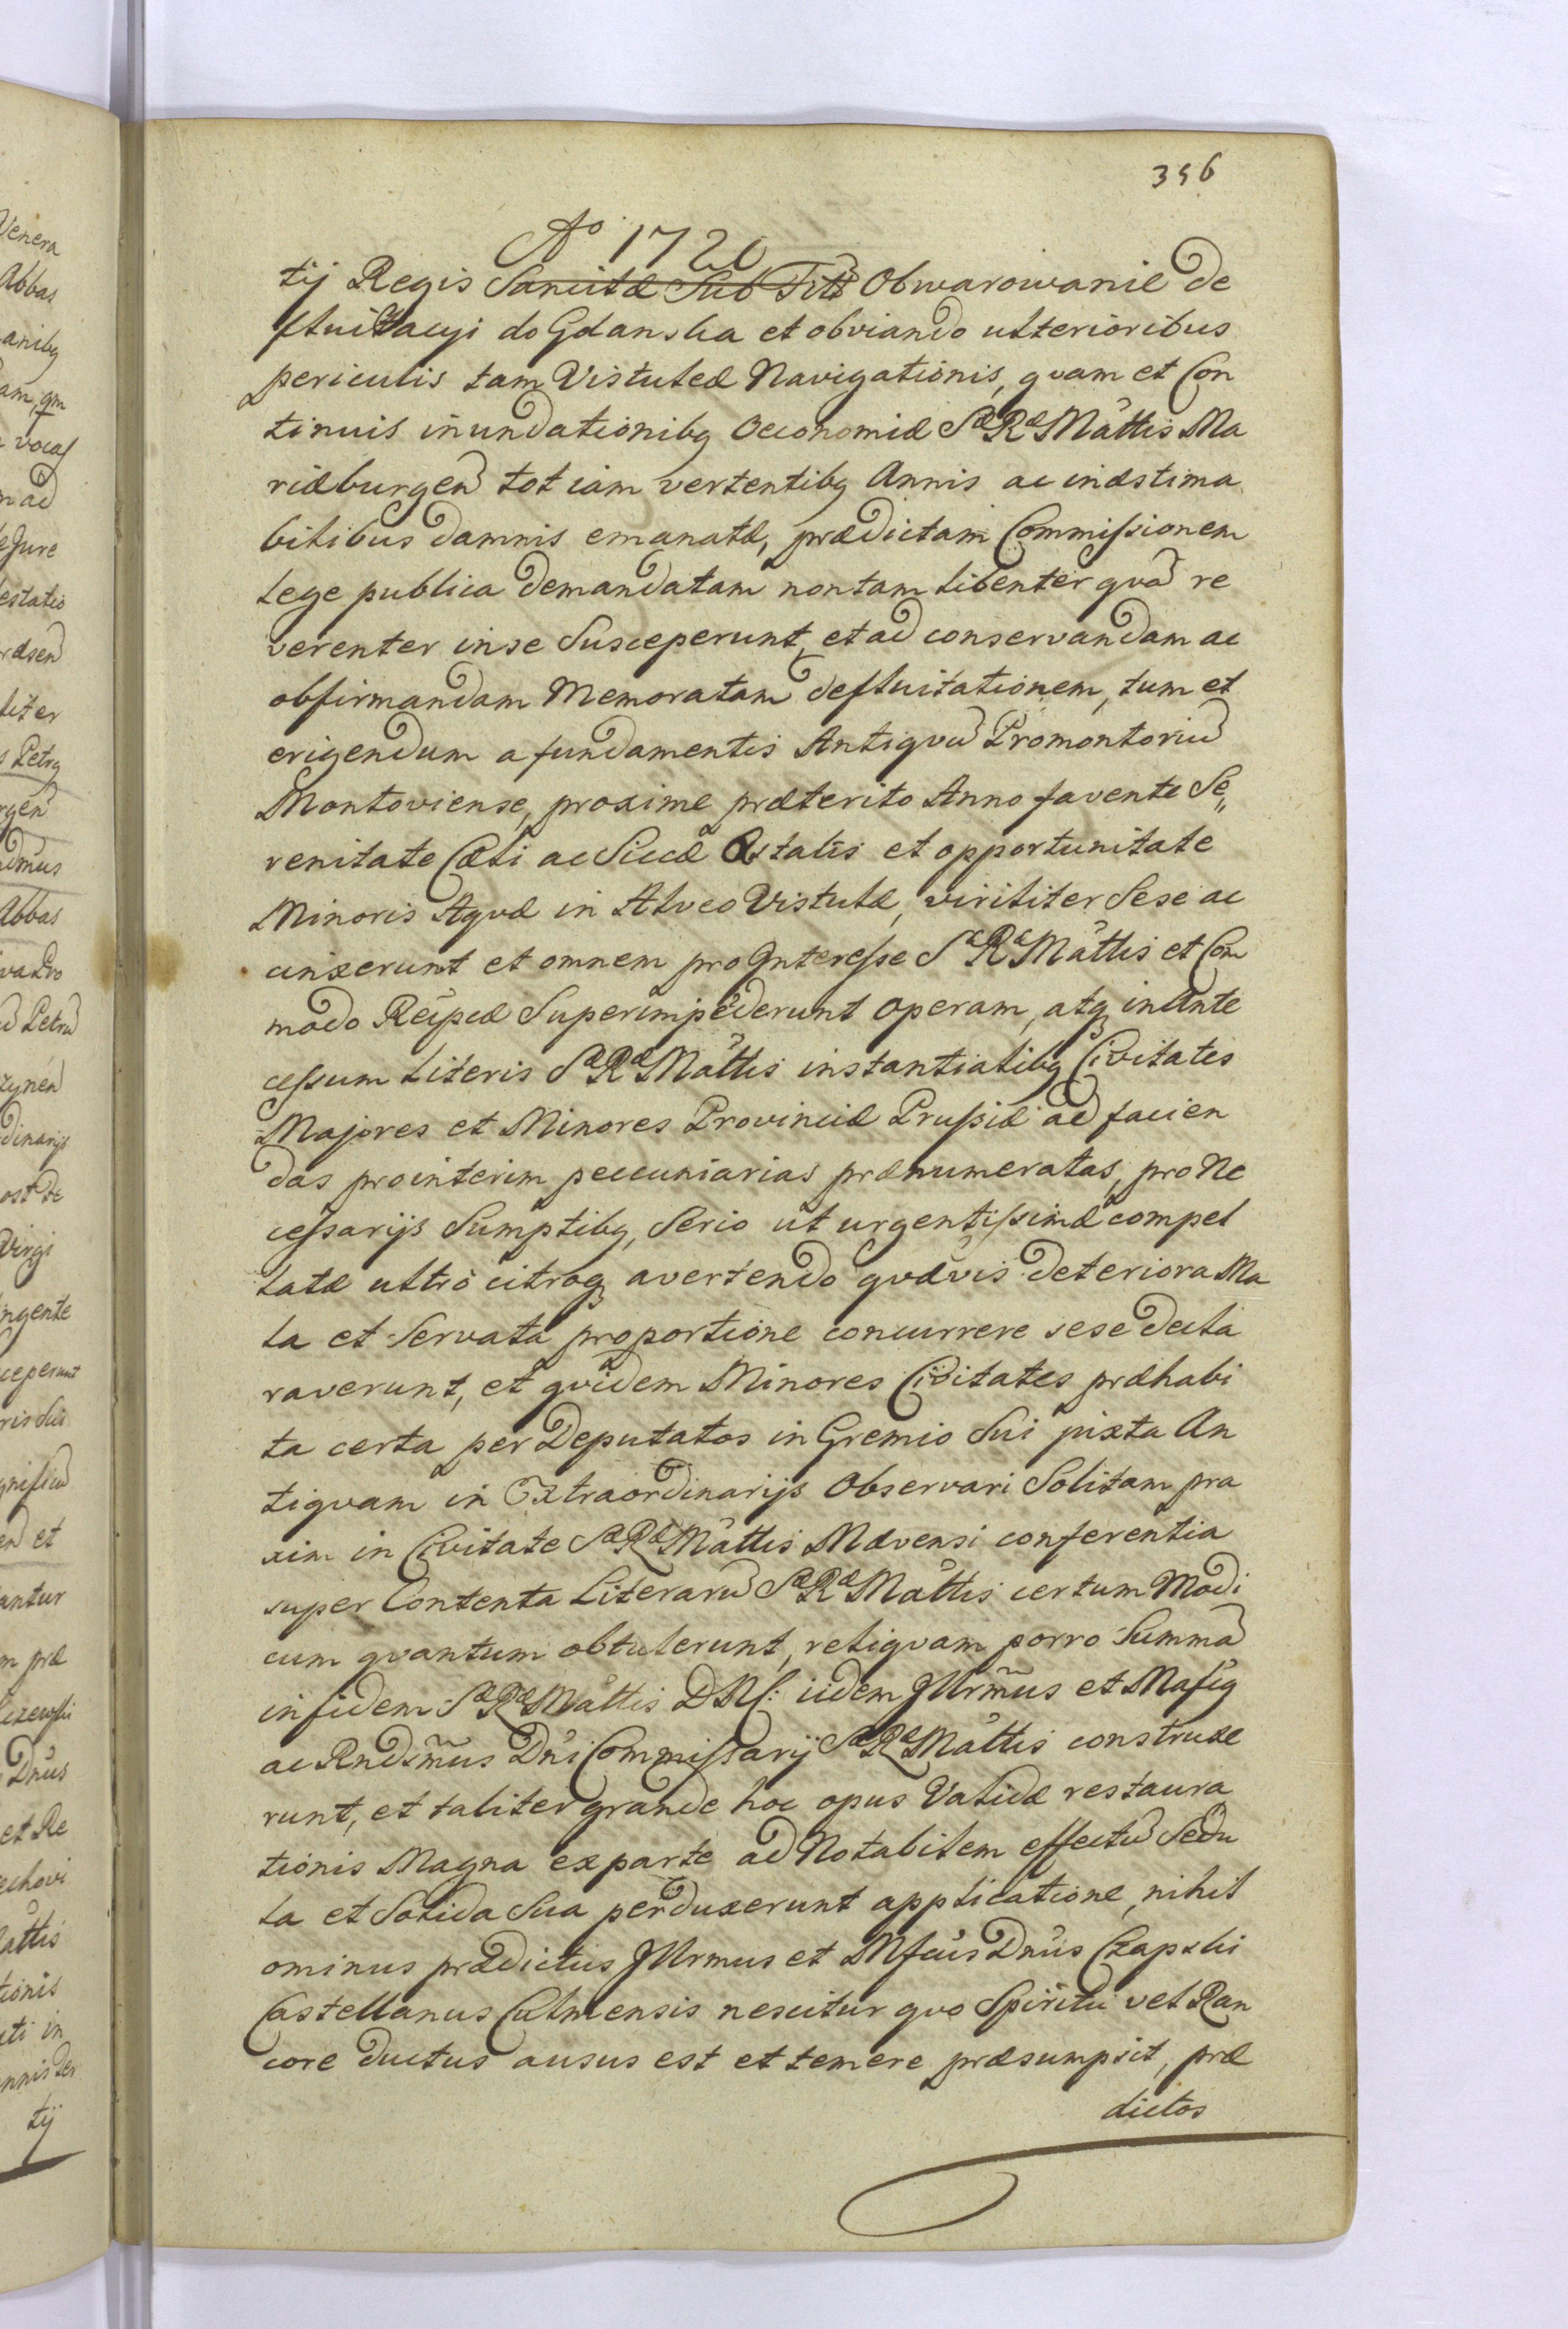 356
Aº 1720
tij Regis Sancitæ Sub Titt Obwarowanie de
fluitacyi do Gdanska et obviando ulterioribus
periculis tam Vistulea Navigationis, qvam et Con
tinuis inundationibq Oeconomiæ Sæ Ræ Mattis Ma
riæburgen tot iam vertentibq Annis ac inæstima
bilibus damnis emanatæ, prædictam Commissionem
Lege publica demandatam non tam libenter qvã re
verenter in se Susceperunt, et ad conservandam ac
obfirmandam Memoratam defluitationem, tum et
erigendum a fundamentis Antiqvũ Promontoriũ
Montoviense, proxime præterito Anno favente Se„
renitate Cæli ac Siccæ Æstatis et opportunitate
Minoris Aqvæ in Alveo Vistulæ, viriliter Sese ac
cinxerunt et omnem pro Interesse Sæ Ræ Mattis et Com
modo Reipcæ Superimpederunt operam, atq in Ante
cessum Literis Sæ Ræ Mattis instantialibq Civitates
Majores et Minores Provinciæ Prussiæ ad facien
das prointerim peccuniarias prænumeratas, pro Ne
cessarijs Sumptibq, Serio ut urgentissimæ compel
latæ ultrò citroq avertendo qvævis deteriora Ma
la et Servata proportione concurrere sese decla
raverunt, et qvidem Minores Civitates præhabi
ta certa per Deputatos in Gremio Sui juxta An
tiqvam in Extraordinarijs Observari Solitam pra
xim in Civitate Sæ Ræ Mattis Mævensi conferentia
super Contenta Literarũ Sæ Ræ Mattis certum Modi
cum qvantum obtulerunt, reliqvam porro Summã
in fidem Sæ Ræ Mattis DNC: iidem Jllrmus et
ac Rndsmus Dni Commissarij Sæ Ræ Mattis construxe
runt, et taliter grande hoc opus Validæ restaura
tionis Magna ex parte ad Notabilem effectũ Sedu
la et Solida Sua perduxerunt applicatione, nihil
ominus prædictus Jllrmus et Mfcus Dnus Czapski
Castellanus Culmensis nescitur qvo Spiritu vel Ran
core ductus ausus est et temere præsumpsit, præ
dictos